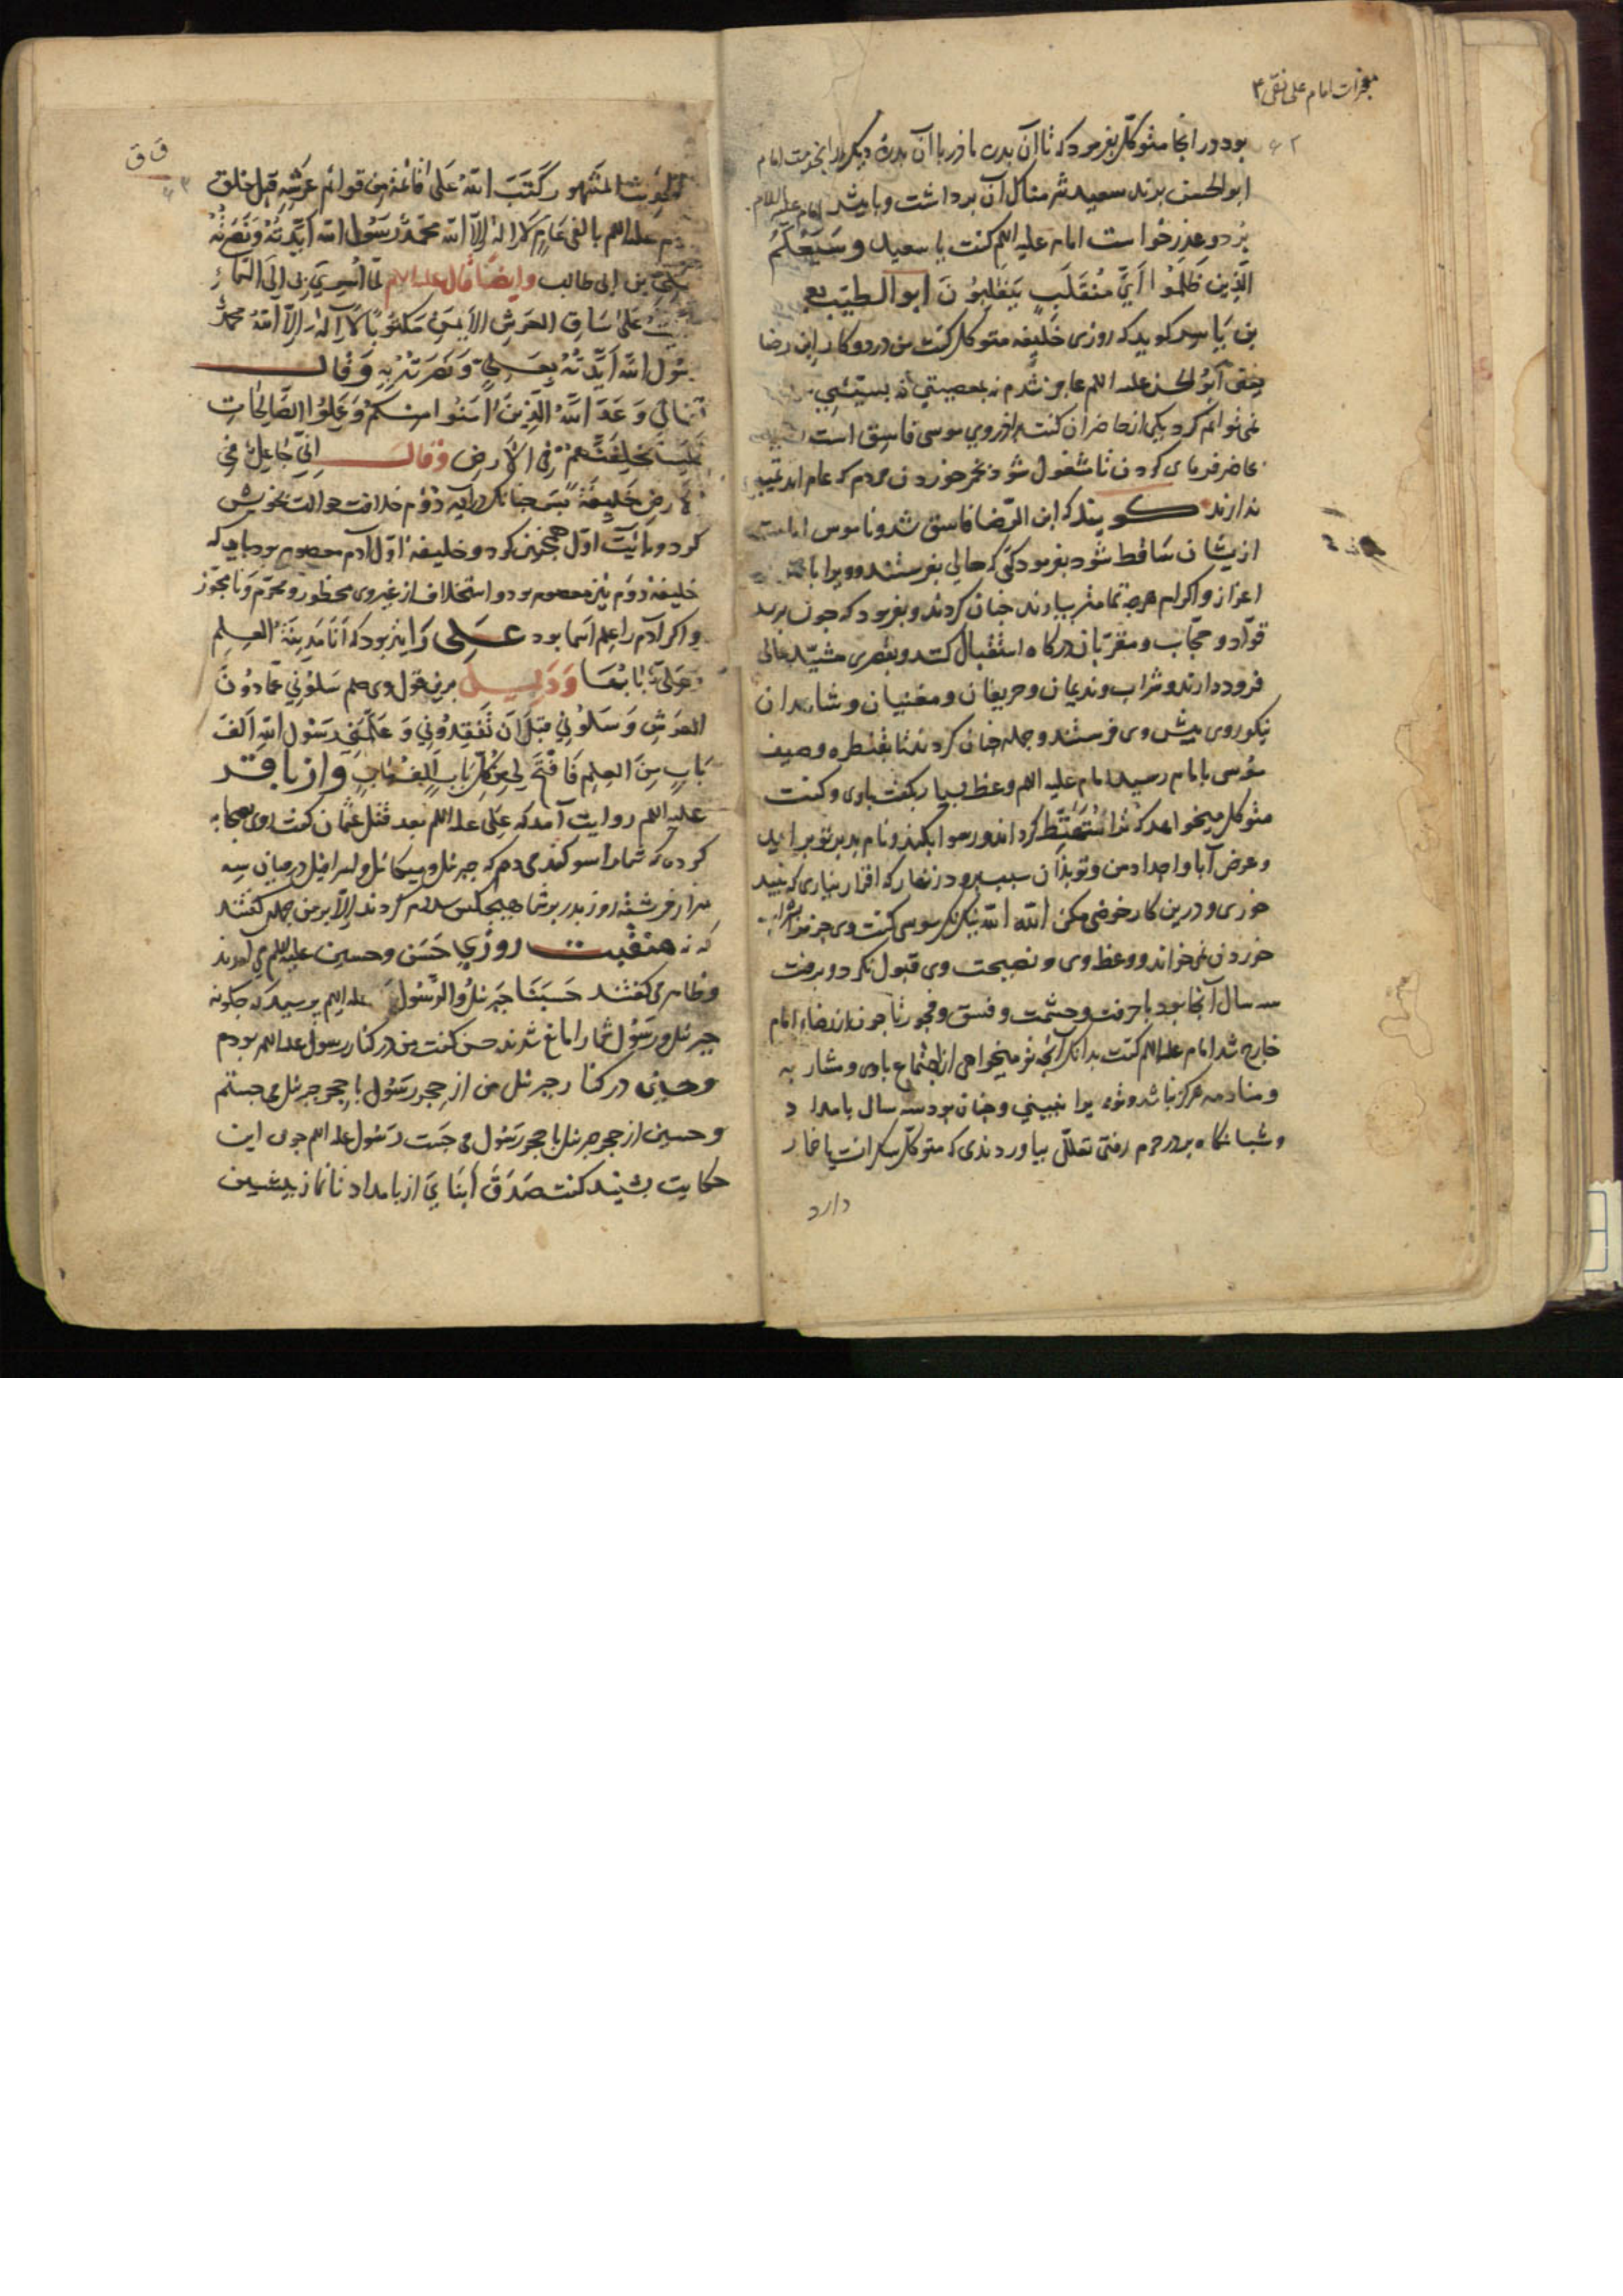 معجزات امام علی نقی ۴
۶۲
بود در انجا متوکل بفرمود که تا آن بدره مادر با آن بدرهٔ دیکر بخدمت امام
ابوالحسن برند سعید شرمناک آن برداشت و باپیش امام علیه السلام
برد و عذر خواست امام علیه اللم کفت یا سعید وَسَیَعْلَمُ
الَّذِینَ ظَلَمُوا اَیَّ مُنْقَلَبٍ یَنْقَلِبُونَ ابوالطیب یعقوب
بن یاسر کوید که روزی خلیفه متوکل کفت من در دو کار ابن رضا
یعنی ابوالحسن علیه اللم عاجز شدم نه بمعصیتی نه بسیئتی
نمی توانم کرد یکی از حاضران کفت برادر وی موسی فاسق است
حاضر فرمای کردن تا مشغول شود بخمر خوردن مردم که عام اند تمییز
ندارند کویند که ابن الرضا فاسق شد و ناموس امامت
ازیشان ساقط شود بفرمود که حالی بفرستند و ویرا با
اعزاز و اکرام هرچه تمامتر بیاردند چنان کردند و بفرمود که چون برسد
قواد و حجاب و مقربان درکاه استقبال کنند و بقصری مشید عالی
فرود دارند و شراب و ندیمان و حریفان و مغنیان و شاهدان
نیکو روی پیش وی فرستند و جمله چنان کردند تا بقنطره وصیف
موسی با امام رسید امام علیه اللم وعظ بسیار بکفت باوی و کفت
متوکل میخواهد که ترا متهتک کرداند و رسوا بکند و نام بد بر تو براید
و عرض آبا و اجداد من و تو بدان سبب برود زنهار که اقرار نیاری که نبید
خوری و درین کار خوضی مکن الله الله نیک نکر موسی کفت وی جز بشراب
خوردن نمی خواند و وعظ وی و نصیحت وی قبول نکرد و برفت
سه سال آنجا بود با حرفت و حشمت و فسق و فجور تا چون از رضاء امام
خارج شد امام علیه اللم کفت بدانکه آنچه تو میخواهی از اجتماع باوی و مشاربه
و منادمه هرکز نباشد و تو ویرا نبینی و چنان بود سه سال بامداد
و شبانکاه بدر حرم رفتی تعللی بیاوردندی که متوکل سکرانست یا خمار
دارد
ق ق
۶۳
الحدیث المشهور کَتَبَ اللهُ عَلی قائمة مِن قوائم عَرشِهِ قبل خلق
آدم علیه اللم بالفی عام لا اله الا الله محمد رسول الله ایدته ونصرته
بعلی بن ابی طالب وایضا قال علیه اللم لما اسری بی الی السماء
رایت علی ساق العرش الایمن مکتوبا لا اله الا الله محمد
رسول الله ایدته بعلی ونصرته به وقال
تعالی وعد الله الذین آمنوا منکم وعملوا الصالحات
لیستخلفنهم فی الارض وقال انی جاعل فی
الارض خلیفة پس چنانک در آیه دوم خلافت حوالت بخویش
کرد در آیت اول همچنین کرد و خلیفهٔ اول آدم معصوم بود باید که
خلیفهٔ دوم نیز معصوم بود و استخلاف از غیر وی محظور و محرم و نامجوز
و اکر آدم را علم اسما بود علی را نیز بود که انا مدینة العلم
وعلی بابها ودلیل برین قول وی صلم سلونی عما دون
العرش وسلونی قبل ان تفقدونی وعلمنی رسول الله الف
باب من العلم فافتح لی من کل باب الف باب واز باقر
علیه اللم روایت آمد که علی علیه اللم بعد قتل عثمان کفت روی بصحابه
کردی که شما را سوکند می دهم که جبرئل و میکائل و اسرافیل در میان سه
هزار فرشته روز بدر بر شما هیچکس سلام کردند الا بر من جمله کفتند
که نه منقبت روزی حسن و حسین علیهما اللم می آمدند
و ظاهر می کفتند حسبنا جبرئل والرسول علیه اللم پرسید که چکونه
جبرئل و رسول شما را مانع شدند حسن کفت من در کنار رسول علیه اللم بودم
و حسین در کنار جبرئل من از حجر رسول با حجر جبرئل می جستم
و حسین از حجر جبرئل با حجر رسول می جست رسول علیه اللم چون این
حکایت بشنید کفت صدق ابنای از بامداد تا نماز پیشین